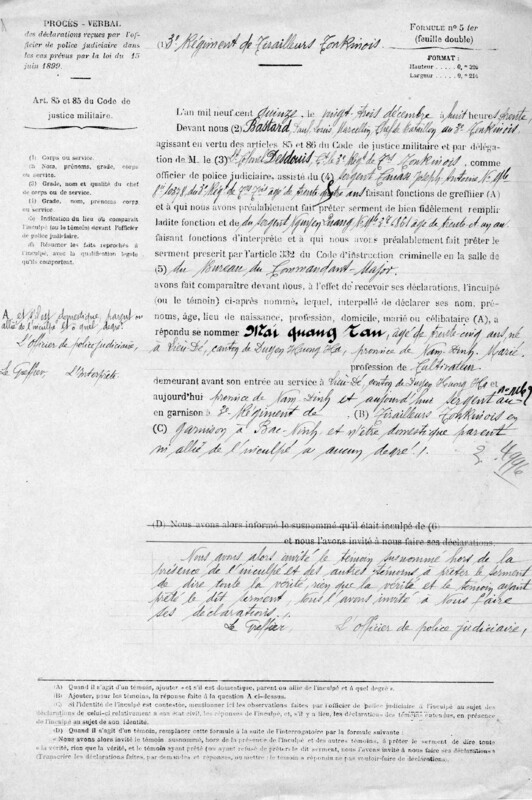 PROCÈS-VERBAL
des déclarations reçues par l'of-
ficier de police judiciaire dans
les cas prévus par la loi du 15
juin 1899.
Art. 83 et 85 du Code de
justice militaire.
(1) Corps ou service.
(2) Nom, prénoms, grade, corps
ou service.
(3) Grade, nom et qualité du chef
de corps ou de service.
(4) Grade, nom, prénoms corps
ou service.
(5) Indication du lieu où comparaît
l'inculpé (ou le témoin) devant l'officier
de police judiciaire.
(6) Résumer les faits reprochés à
l'inculpé, avec la qualification légale
qu'ils comportent.
A et s'il est domestique, parent ou
allié de l'inculpé et à quel degré.
L'Officier de police judiciaire,
Le Greffier, L'Interprète.
(1) 3e Régiment de Tirailleurs Tonkinois.
FORMULE nº 5 ter
(feuille double)
FORMAT :
Hauteur
Largeur
L'an mil neuf cent quinze, le vingt-trois décembre à huit heures trente
Devant nous (2) Bastard, Paul, Louis, Marcellin, Chef de Bataillon au 3e Tonkinois,
agissant en vertu des articles 85 et 86 du Code de justice militaire et par
délégation de M. le (3) Desdouis Tonkinois, comme
officier de police judiciaire, assisté du (4) sergent Joseph Antoine
faisant fonctions de greffier (A)
et à qui nous avons préalablement fait prêter serment de bien et fidèlement remplir
ladite fonction et de sergent Nguyen Quang de trente et un an
faisant fonctions d'interprète et à qui nous avons préalablement fait prêter le
serment prescrit par l'article 332 du Code d'instruction criminelle en la salle de
(5) du Bureau du Commandant-Major.
avons fait comparaître devant nous, à l'effet de recevoir ses déclarations, l'inculpé
(ou le témoin) ci-après nommé, lequel, interpellé de déclarer ses nom, pré-
noms, âge, lieu de naissance, profession, domicile, marié ou célibataire (A), a
répondu se nommer Mai quang Tan, âgé de trente cinq ans né
à Vien Dê, canton de Duyen Hung Ha, province de Nam-Dinh. Marié.
profession de Cultivateur
demeurant avant son entrée au service à Vien-Dê, canton de Duyen Hung Ha et
aujourd'hui province de Nam-Dinh et aujourd'hui sergent au
en garnison à 3e Régiment de (B) Tirailleurs Tonkinois en
(C) garnison à Bac-Ninh, et n'être domestique parent
ni allié de l'inculpé à aucun degré.
(D) Nous avons alors informé le susnommé qu'il était inculpé de (6)
et nous l'avons invité à nous faire ses déclarations.
Nous avons alors invité le témoin susnommé hors de la
présence de l'inculpé et des autres témoins, à prêter le serment
de dire toute la vérité, rien que la vérité et le témoin ayant
prêté le dit serment, nous l'avons invité à nous faire
ses déclarations.
Le Greffier, L'Officier de police judiciaire,
(A) Quand il s'agit d'un témoin, ajouter « et s'il est domestique, parent ou allié de l'inculpé et à quel degré ».
(B) Ajouter, pour les témoins, la réponse faite à la question A ci-dessus.
(C) Si l'identité de l'inculpé est contestée, mentionner ici les observations faites par l'officier de police judiciaire à l'inculpé au sujet des
déclarations de celui-ci relativement à son état civil, les réponses de l'inculpé, et, s'il y a lieu, les déclarations des témoins entendus, en présence
de l'inculpé au sujet de son identité.
(D) Quand il s'agit d'un témoin, remplacer cette formule à la suite de l'interrogatoire par la formule suivante :
« Nous avons alors invité le témoin susnommé, hors de la présence de l'inculpé et des autres témoins, à prêter le serment de dire toute
la vérité, rien que la vérité, et le témoin ayant prêté (ou ayant refusé de prêter) le dit serment, nous l'avons invité à nous faire ses déclarations »
(Transcrire les déclarations faites, par demandes et réponses, ou mettre : le témoin a répondu ne pas vouloir faire de déclarations).